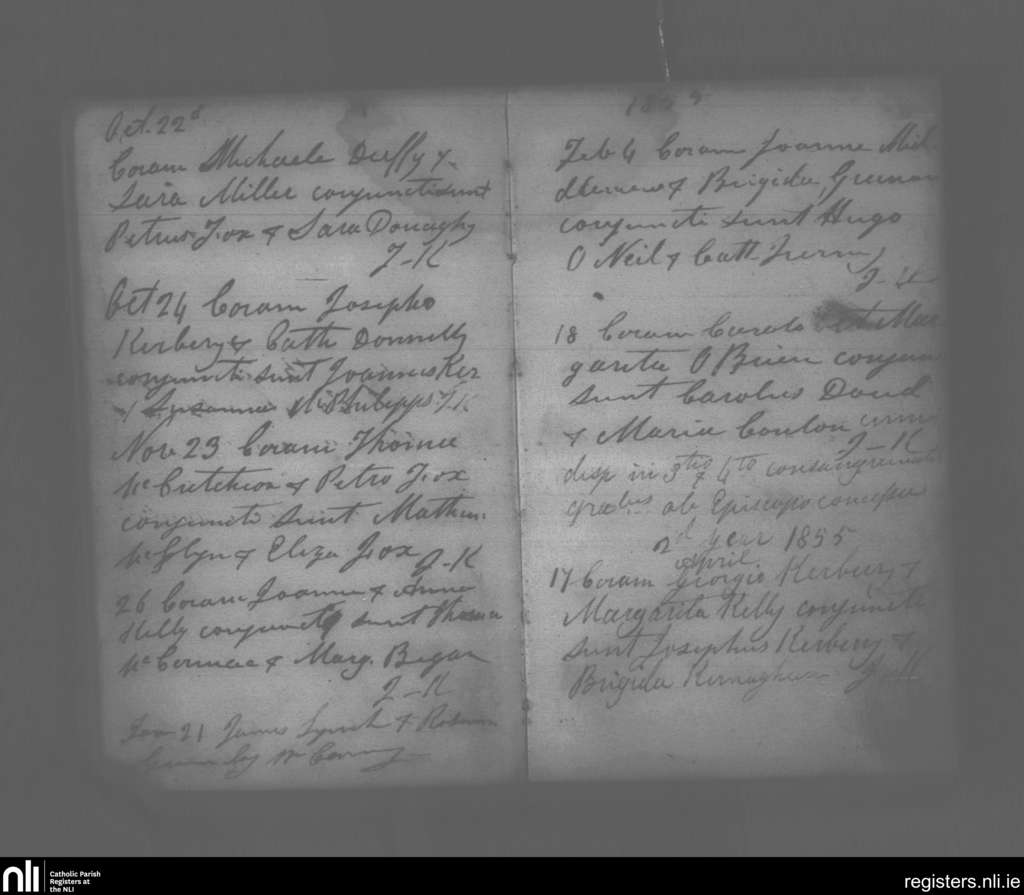 Oct. 22d
Coram Michaele Duffy &
Sara Miller conjuncti sunt
Petrus Fox & Sara Donaghy
J-K
Oct 24 Coram Josepho
Kerbery & Cath Donnelly
conjuncti sunt Joannes Ker
& Susanna McPhilipps J-K
Nov 23 Coram Thoma
Mc Cutcheon & Petro Fox
conjuncti sunt Mathew
& Eliza Fox J-K
26 Coram Joanne & Anna
Kelly conjuncti sunt Thoma
Mc Cormac & Marg. Began
J-K
Jan 21 James Lynch &
1855
Feb 4 Coram Joanne
& Brigida
conjuncti sunt Hugo
O Neil & Cath
J-K
18 Coram Carolo et Mar
garita O Brien conjun
sunt Carolus David
& Maria Conlon cum
J-K
disp in 3tio & 4to consanguineitatis
gradus ab Episcopo concessa
2d year 1855
April
17 Coram Georgio Kerbery &
Margarita Kelly conjuncti
sunt Josephus Kerbery &
Brigida Kernaghan J-K
nli
Catholic Parish
Registers at
the NLI
registers.nli.ie